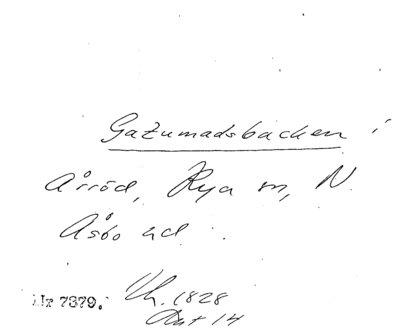 Gazumadsbacken i
Årröd, Rya sn, N.
Åsbo hd.
Nr 7379. Lh. 1828
Akt 14